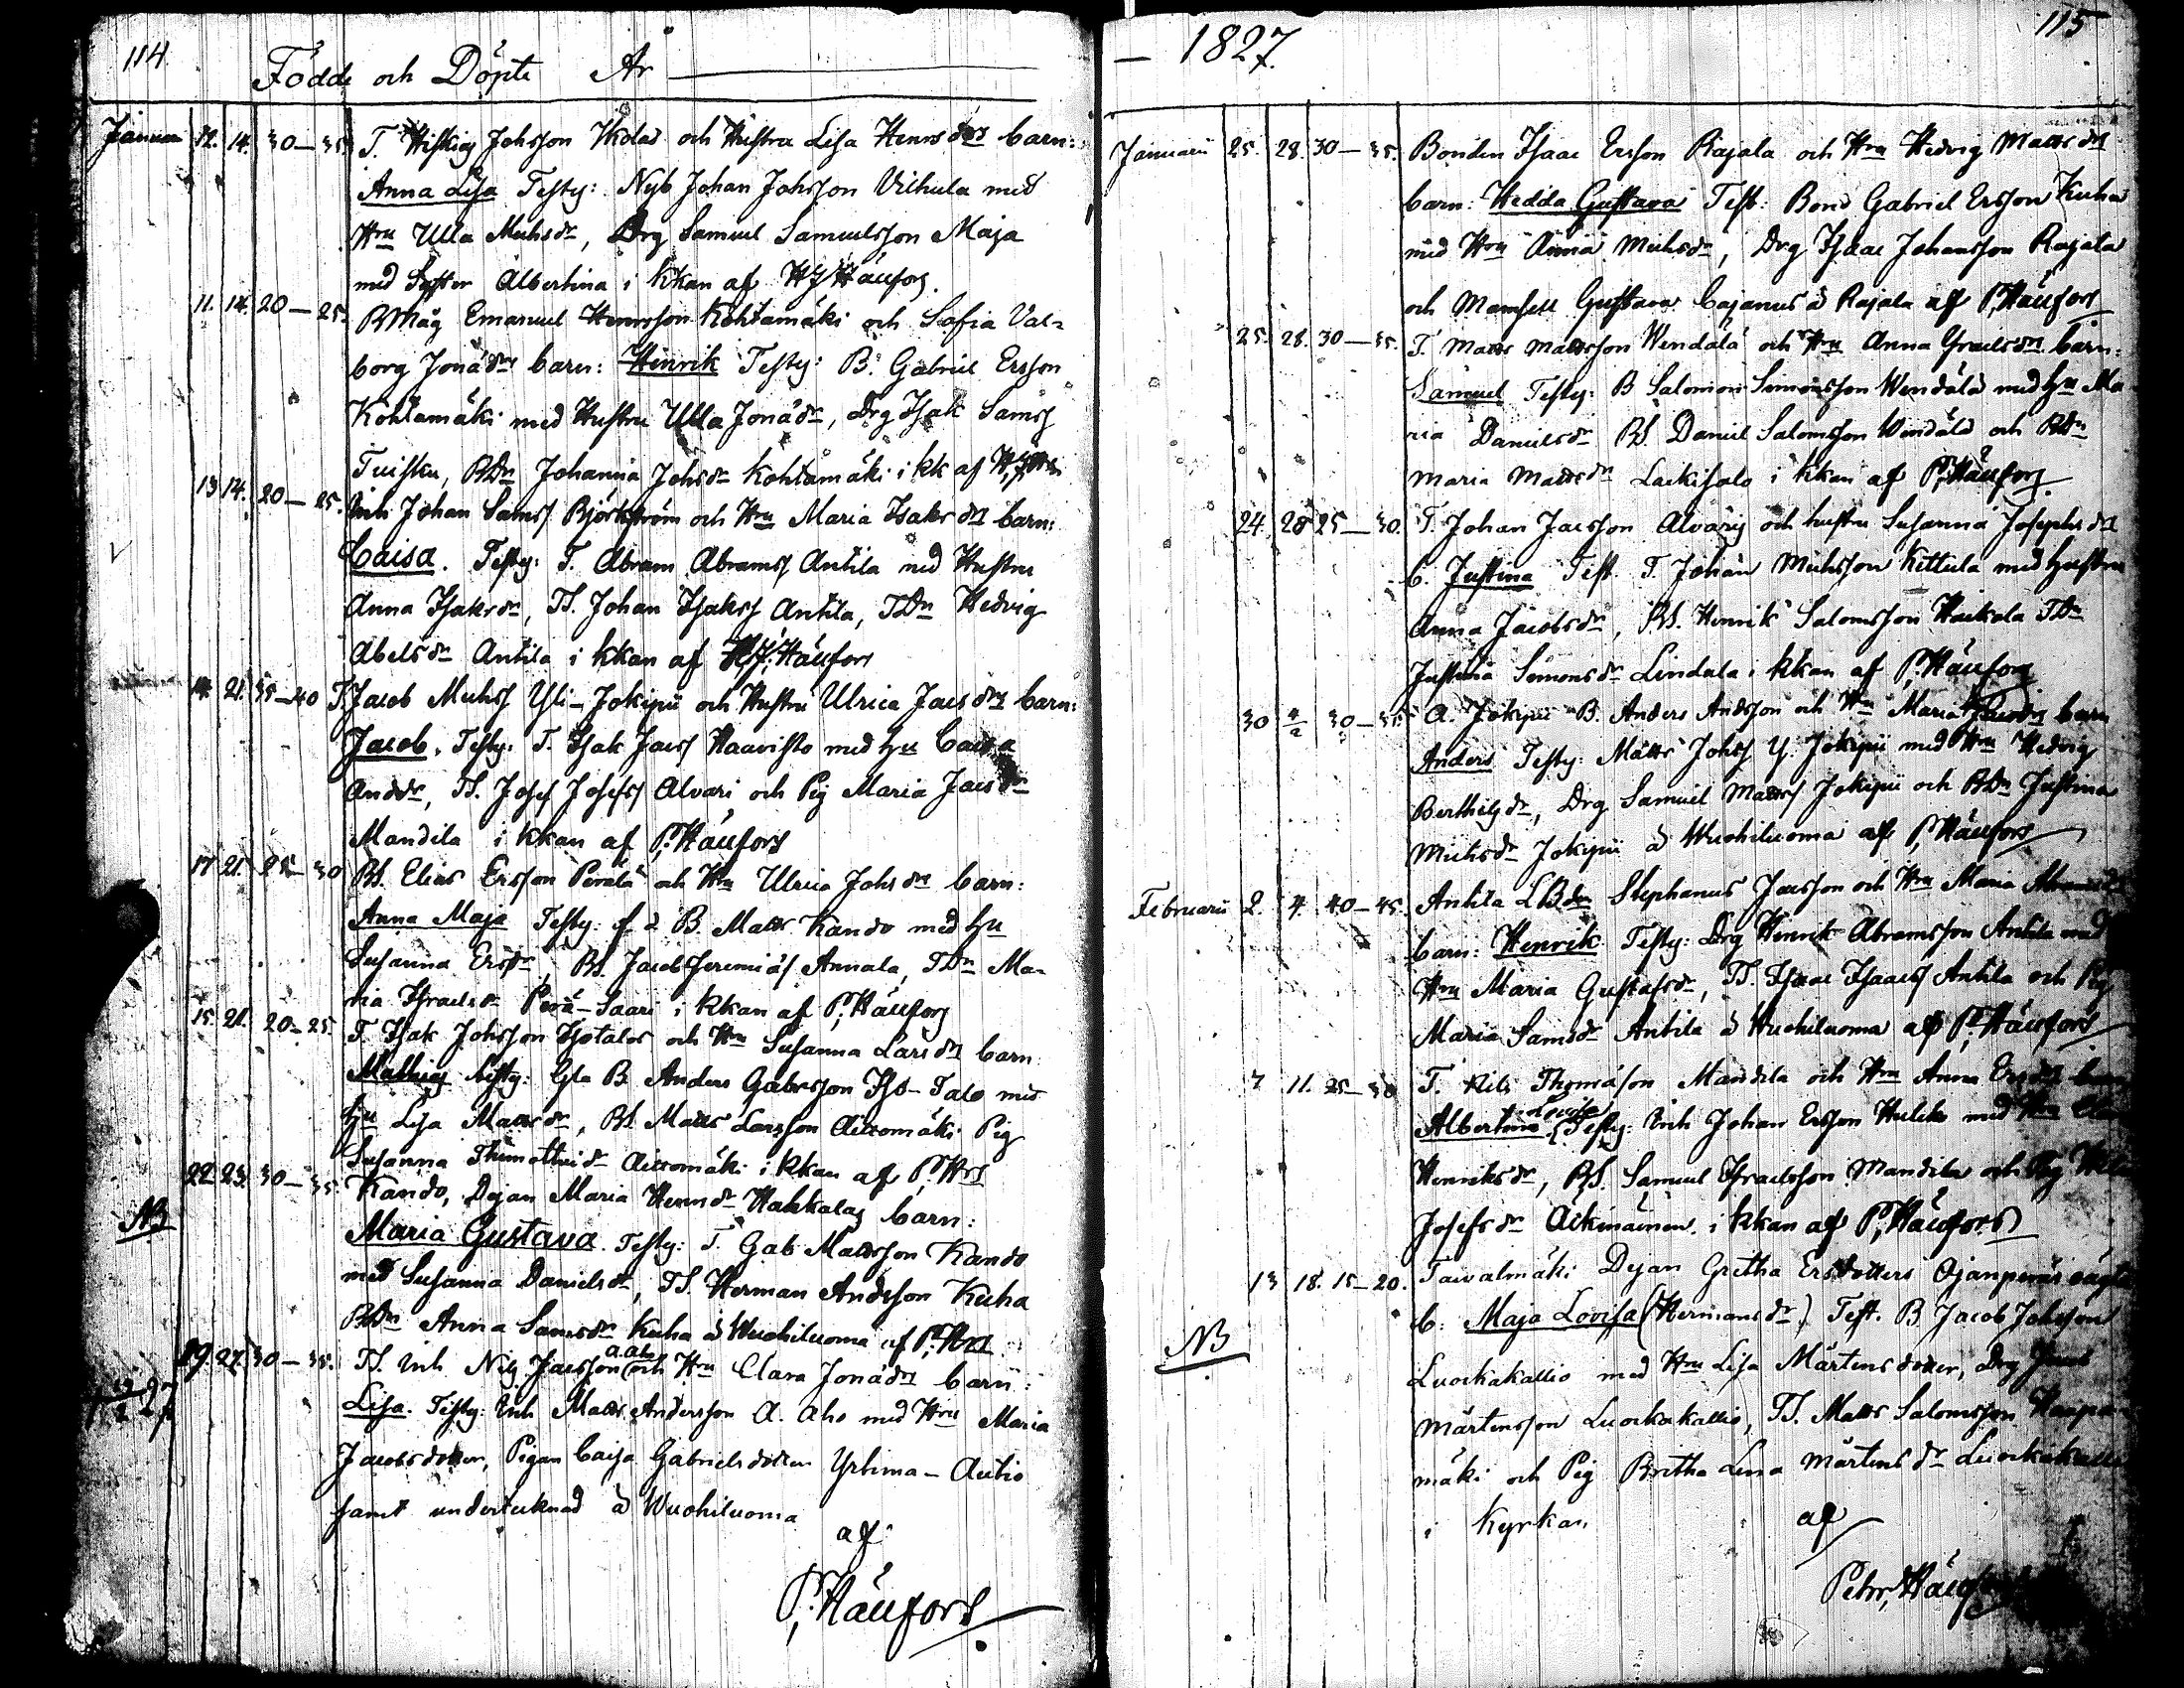 114
Födde och Döpte År
Januarii 12. 14. 30—35. T. Hiskias Johsson Wkolas och Hustru Lisa Henrsdrs barn:
Anna Lisa Testes: Nyb Johan Johsson Vilhula med
Hru Ulla Michsdr, Drg Samuel Samuelsson Maja
med Syster Albertina i kkan af
11. 14. 20—25. BMåg Emanuel Henrsson Kohtamäki och Sofia Val-
borg Jonædrs barn: Henrik Testes: B. Gabriel Ersson
Kohtamäki med Hustru Ulla Jonædr, Drg Isak Samss
Tuisku, BDn Johanna Johsdr Kohtamäki i kk af
13 14. 20—25. Inh Johan Samss Björkström och Hru Maria Isaksdrs barn:
Caisa. Testes: T. Abram Abramss Antila med Hustru
Anna Isaksdr, TS. Johan Isakss Antila, TDn Hedvig
Abelsdr Antila i kkan af Häufors
14. 21. 35—40 T. Jacob Michss Yli-Jokipii och Hustru Ulrica Jacsdrs barn:
Jacob. Testes: T. Isak Jacss Haavisto med hu Caisa
Andsdr, TS. Josef Josefss Alvari och Pig Maria Jacsdr
Mandila i kkan af P. Häufors
17 21. 25—30 BS. Elias Ersson Perälä och Hru Ulrica Johsdrs barn:
Anna Maja Testes: f d B. Matts Kando med hu
Susanna Ersdr, BS. Jacob Jeremiæs Annala, TDn Ma-
ria Israelsdr Perä-Saari i kkan af P. Häufors
15. 21. 20—25. T. Isak Johsson Isotalos och Hru Susanna Larsdrs barn
Mathias Testes: Gla B. Anders Gabrsson Iso-Talo med
hu Lisa Mattsdr, BS. Matts Larsson Pig
Susanna Thimotheidr i kkan af P. Hrs
22. 23. 30—35. Kando, Dejan Maria Henrsdr Hahkalas barn:
NB Maria Gustava. Testes: T. Gab Mattsson Kando
med Susanna Danielsdr, TS. Herman Andsson Kuha
BDn Anna Samsdr Kuha å Wuohiluoma af P. Hrs
19. 27. 30—35. TS. Inh Nils Jacsson A. Aho och Hru Clara Jonædrs barn:
Lisa. Testes: Inh Matts Andersson A. Aho med Hru Maria
Jacobsdotter, Pigan Caisa Gabrielsdotter Yrlima-Autio
samt undertecknad å Wuohiluoma
af
P. Häufors
— 1827. 115
Januarii 25. 28. 30—35. Bonden Isaac Ersson Rajala och Hru Hedvig Mattsdrs
barn: Hedda Gustava Test: Bond Gabriel Ersson Kuha
med Hru Anna Michsdr, Drg Isaac Johansson Rajala
och Mamsell Gustava Cajanus å Rajala af P. Häufors
25. 28. 30—35. T. Matts Mattsson Wendälä och Hru Anna Israelsdrs barn:
Samuel Testes: B Salomon Simonsson Wendälä med hu Ma
ria Danielsdr BS. Daniel Salomsson Wendälä och BDn
Maria Mattsdr i kkan af P. Häufors
24. 28 25—30. T. Johan Jacsson Alvaris och hustru Susanna Josephsdrs
b. Justina Test. T. Johan Michsson Kettula med hustru
Anna Jacobsdr, BS. Henrik Salomsson TDn
Justina Simonsdr Lindala i kkan af P. Häufors
30 4/2 30—35 A. Jokipii B. Anders Andsson och Hru Maria barn
Anders Testes: Matts Johss Y. Jokipii med Hru Hedvig
Berthilsdr, Drg Samuel Mattss Jokipii och BDn Justina
Michsdr Jokipii å Wuohiluoma af P. Häufors
Februarii 2. 4. 40—45. Antila Stephanus Jacsson och Hru Maria
barn: Henrik Testes: Drg Henrik Abramsson Antila med
Hru Maria Gustafsdr, TS. Isaac Isaacss Antila och Pig
Maria Samsdr Antila å Wuohiluoma af P. Häufors
7 11. 25—30 T. Nils Thomæson Mandila och Hru Anna Ersdrs barn
Albertina Lovisa Testes: Inh Johan Ersson med Hru
Henriksdr, BS. Samuel Israelsson Mandila och Pig
Josefsdr i kkan af P. Häufors
13 18. 15—20. Taivalmäki Dejan Gretha Ersdotters
NB b: Maja Lovisa (Hermansdr) Test. B Jacob Johsson
Luockakallio med Hru Lisa Mårtensdotter, Drg
Mårtensson Luockakallio, TS. Matts Salomsson
mäki och Pig Britha Lena Mårtensdr Luockakallio
i Kyrkan af
Petr. Häufors